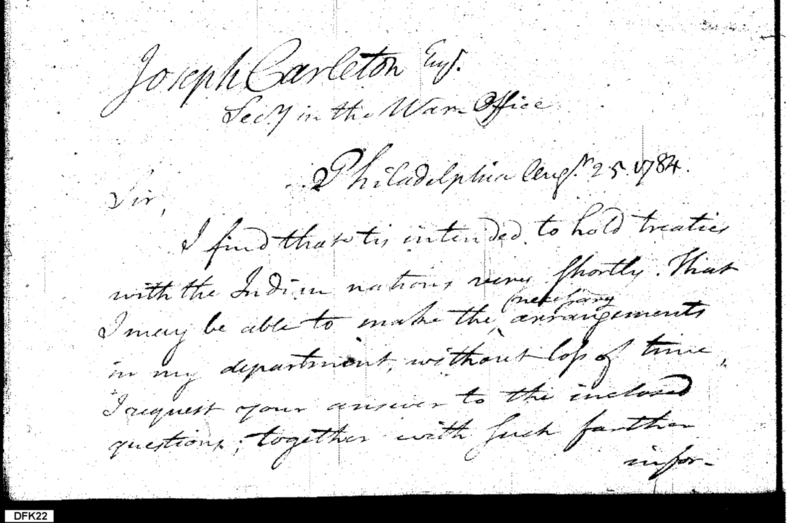 Joseph Carleton Esqr.
Secy in the War Office
Philadelphia Augst. 25. 1784.
Sir,
I find that tis intended to hold treaties
with the Indian nations very shortly. That
necessary
I may be able to make the arrangements
in my department, without loss of time,
I request your answer to the inclosed
questions; together with such farther
infor-
DFK22